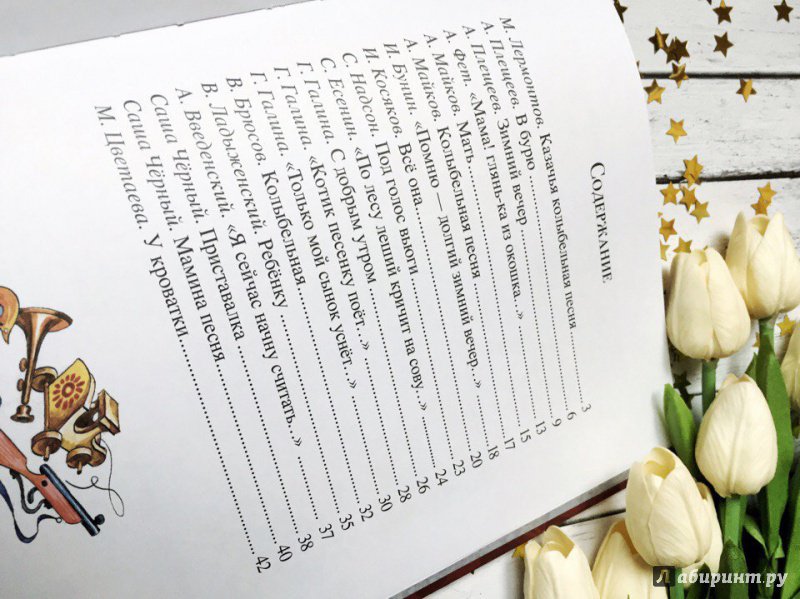 Содержание
М. Лермонтов. Казачья колыбельная песня ..... 3
А. Плещеев. В бурю ..... 6
А. Плещеев. Зимний вечер ..... 9
А. Фет. «Мама! глянь-ка из окошка...» ..... 13
А. Майков. Мать ..... 15
А. Майков. Колыбельная песня ..... 17
И. Бунин. «Помню — долгий зимний вечер...» ..... 18
И. Косяков. Всё она ..... 20
С. Надсон. Под голос вьюги ..... 23
С. Есенин. «По лесу леший кричит на сову...» ..... 24
Г. Галина. С добрым утром ..... 26
Г. Галина. «Котик песенку поёт...» ..... 28
Г. Галина. «Только мой сынок уснёт...» ..... 30
В. Брюсов. Колыбельная ..... 32
В. Ладыженский. Ребёнку ..... 35
А. Введенский. «Я сейчас начну считать...» ..... 37
Саша Чёрный. Приставалка ..... 38
Саша Чёрный. Мамина песня ..... 40
М. Цветаева. У кроватки ..... 42
Лабиринт.ру